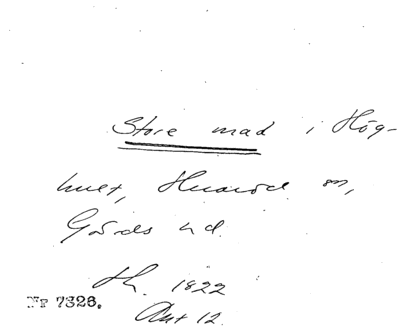 Store mad i Hög-
hult, Huaröd sn,
Gärds hd.
th. 1822
Akt 12.
Nr 7326.